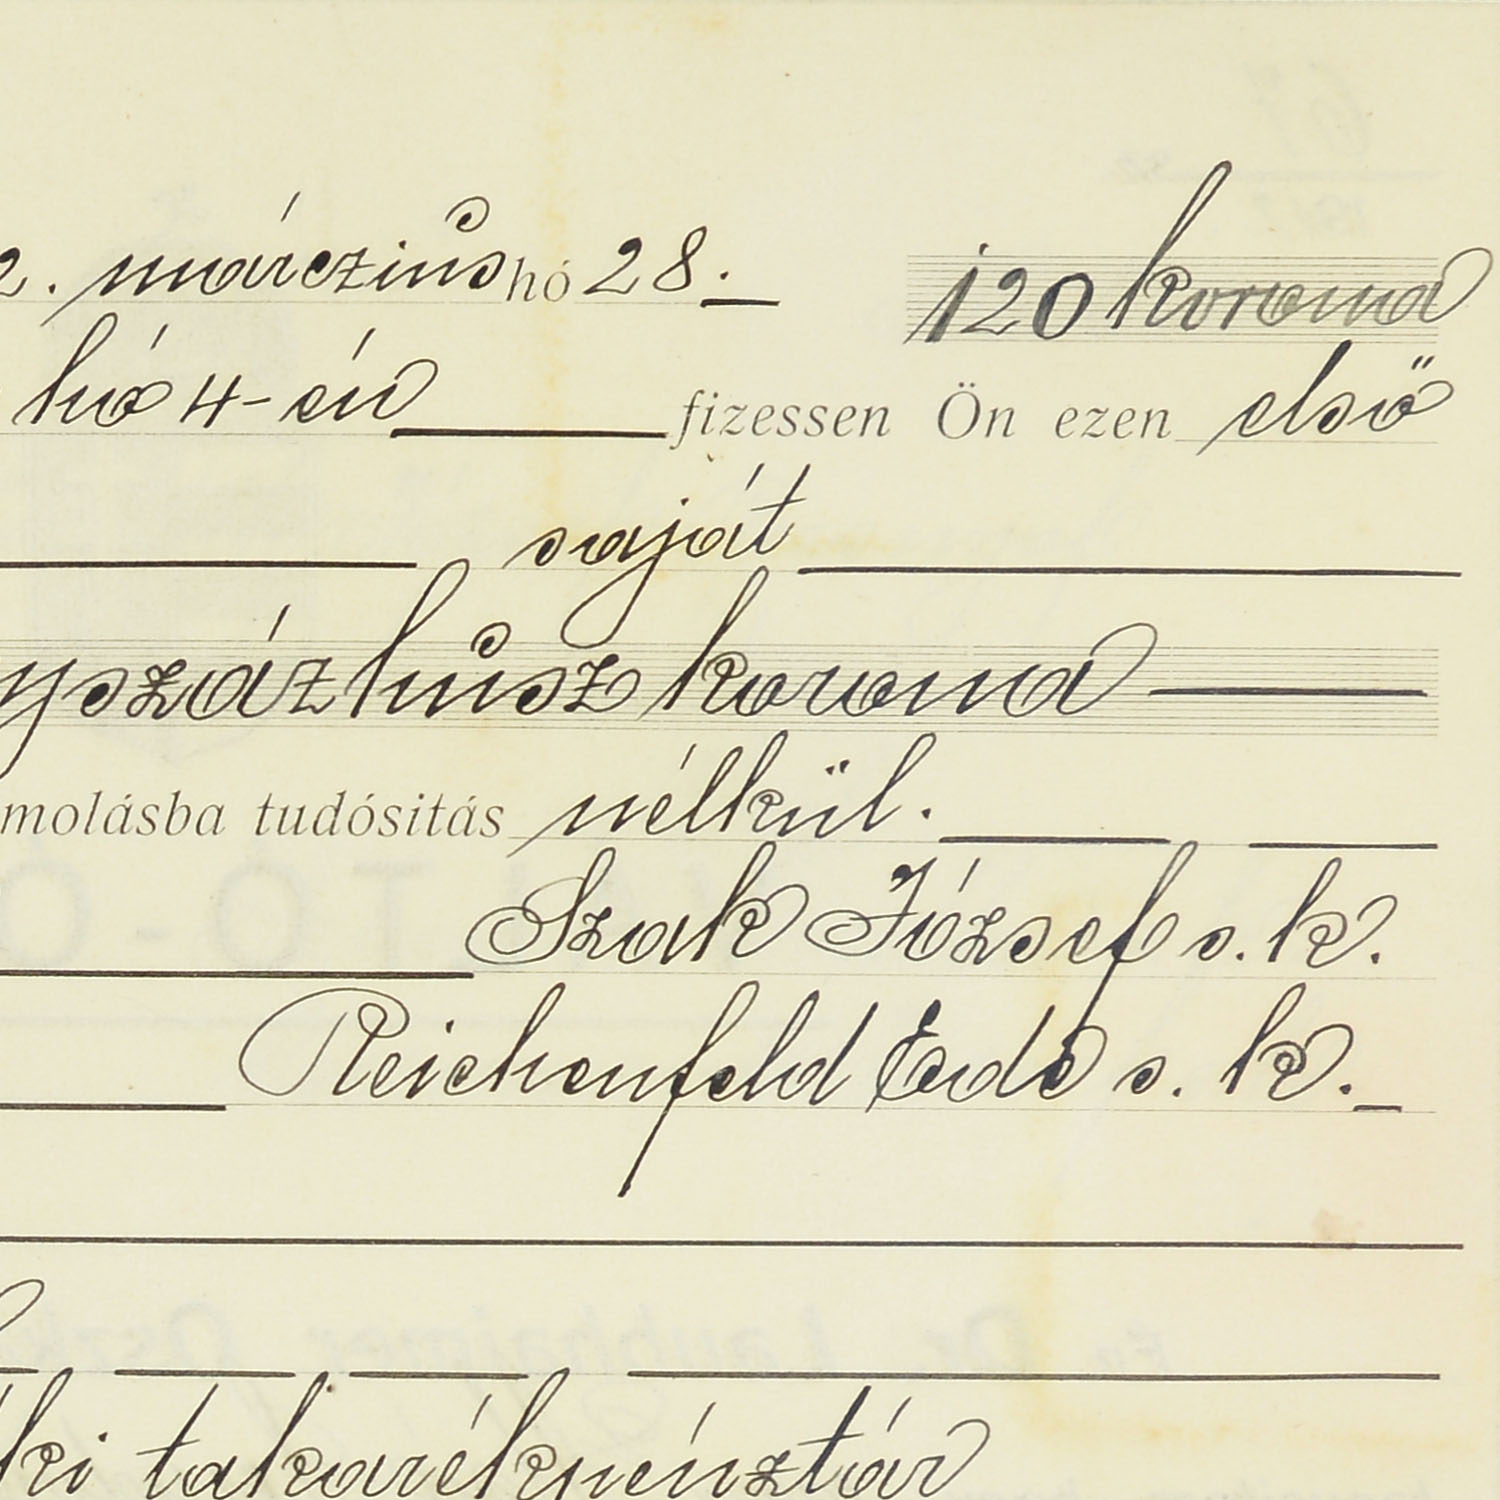 2. márczius hó 28. 120 korona
hó 4-én fizessen Ön ezen első
saját
yszázhúsz korona
molásba tudósitás nélkül.
Szak József s. k.
Reichenfeld Ede s. k.
ki takarékpénztár